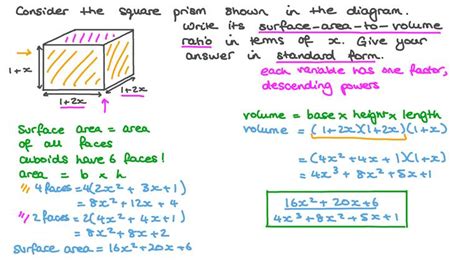 Consider the square prism shown in the diagram.
Write its surface-area-to-volume
ratio in terms of x. Give your
answer in standard form.
each variable has one factor,
descending powers
1+x
1+2x
1+2x
surface area = area
of all faces
cuboids have 6 faces!
area = b x h
4 faces = 4(2x² + 3x+1)
= 8x² + 12x + 4
2 faces = 2(4x² + 4x+1)
= 8x² + 8x + 2
surface area = 16x² + 20x + 6
volume = base x height x length
volume = (1+2x)(1+2x)(1+x)
= (4x² + 4x + 1)(1+x)
= 4x³ + 8x² + 5x + 1
16x² + 20x + 6
4x³ + 8x² + 5x + 1